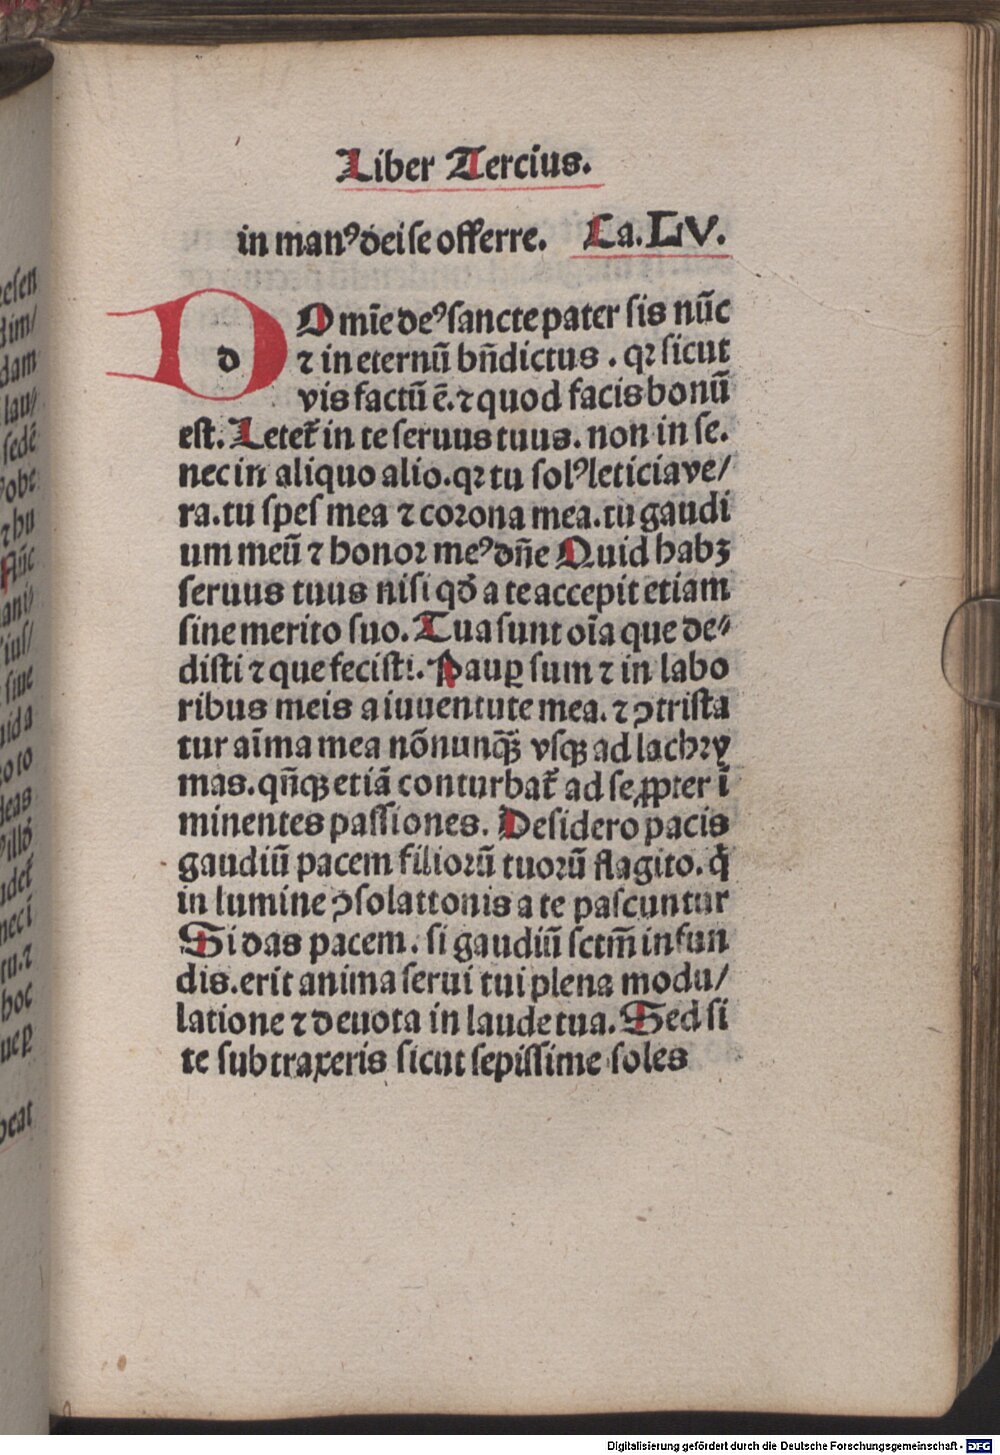 Liber Tercius.
in manꝰ dei se offerre. Ca. LV.
d
DOmīe deꝰ sancte pater sis nūc
⁊ in eternū bn̄dictus. qꝛ sicut
vis factū ē. ⁊ quod facis bonū
est. Letet᷑ in te seruus tuus. non in se.
nec in aliquo alio. qꝛ tu solꝰ leticia ve/
ra. tu spes mea ⁊ corona mea. tu gaudi
um meū ⁊ honor meꝰ dn̄e Quid habꝫ
seruus tuus nisi qd̄ a te accepit etiam
sine merito suo. Tua sunt oīa que de⸗
disti ⁊ que fecisti. Paup̲ sum ⁊ in labo
ribus meis a iuuentute mea. ⁊ ꝯtrista
tur aīma mea nōnunqꝫ̄ vsqꝫ ad lachry
mas. qn̄qꝫ etiā conturbat᷑ ad se ꝓpter ī
minentes passiones. Desidero pacis
gaudiū pacem filiorū tuorū flagito. q̄
in lumine ꝯsolattonis a te pascuntur
Si das pacem. si gaudiū sctm̄ infun
dis. erit anima serui tui plena modu/
latione ⁊ deuota in laude tua. Sed si
te subtraxeris sicut sepissime soles
Digitalisierung gefördert durch die Deutsche Forschungsgemeinschaft - DFG